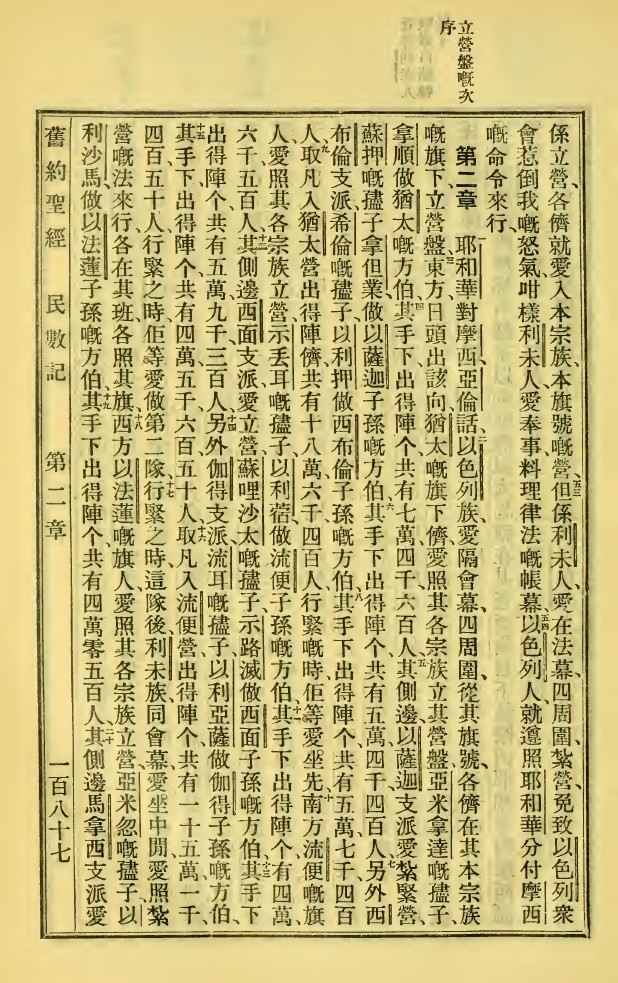 立營盤嘅次
序
係立營、各儕就愛入本宗族、本旗號嘅營、五三但係利未人、愛在法幕四周圍紮營、免致以色列衆
會惹倒我嘅怒氣、咁樣利未人愛奉事料理律法嘅帳幕、五四以色列人就遵照耶和華分付摩西
嘅命令來行、
第二章 一耶和華對摩西亞倫話、二以色列族、愛隔會幕四周圍、從其旗號、各儕在其本宗族
嘅旗下、立營盤、三東方日頭出該向、猶太嘅旗下儕、愛照其各宗族立其營盤、亞米拿達嘅孻子、
拿順做猶太嘅方伯、四其手下出得陣个、共有七萬四千六百人、五其側邊以薩迦支派愛紮緊營、
蘇押嘅孻子拿但業、做以薩迦子孫嘅方伯、六其手下出得陣个、共有五萬四千四百人、七另外西
布倫支派、希倫嘅孻子以利押做西布倫子孫嘅方伯、八其手下出得陣个、共有五萬七千四百
人、九取凡入猶太營出得陣儕、共有十八萬六千四百人、行緊嘅時、佢等愛坐先、十南方流便嘅旗
人、愛照其各宗族立營、示丟耳嘅孻子以利蓿做流便子孫嘅方伯、十一其手下出得陣个、有四萬
六千五百人、十二其側邊西面支派愛立營、蘇哩沙太嘅孻子示路滅做西面子孫嘅方伯、十三其手下
出得陣个、共有五萬九千三百人、十四另外伽得支派、流耳嘅孻子以利亞薩做伽得子孫嘅方伯、
十五其手下出得陣个、共有四萬五千六百五十人、十六取凡入流便營出得陣个、共有一十五萬一千
四百五十人、行緊之時、佢等愛做第二隊、十七行緊之時、這隊後、利未族同會幕愛坐中間、愛照紮
營嘅法來行、各在其班、各照其旗、十八西方以法蓮嘅旗人、愛照其各宗族立營、亞米忽嘅孻子以
利沙馬做以法蓮子孫嘅方伯、十九其手下出得陣个、共有四萬零五百人、二十其側邊馬拿西支派愛
舊約聖經 民數記 第二章 一百八十七